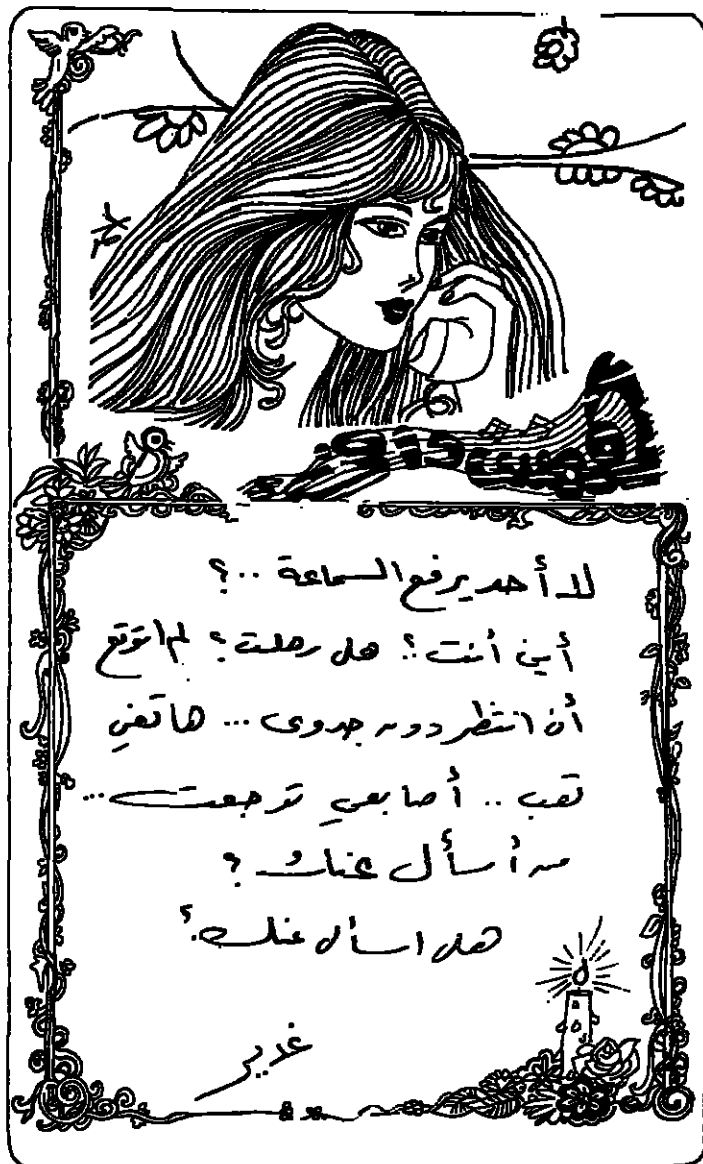 لا أحد يرفع السماعة ..؟
أين أنت؟ هل رحلت؟ لم اتوقع
أن انتظر دون جدوى ... هاتفي
تعب .. أصابعي توجعت ...
من أسأل عنك ؟
هل اسأل عنك؟
غدير